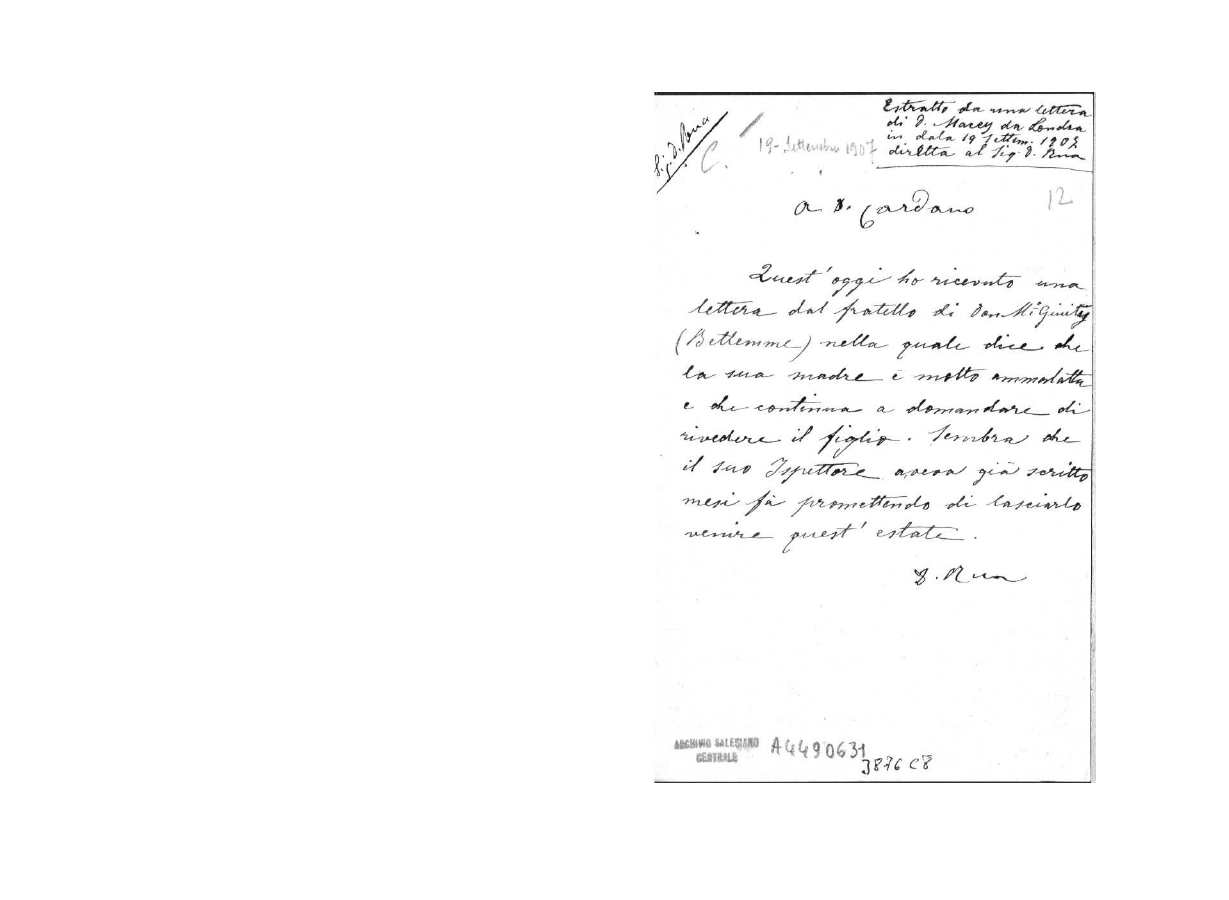 Sig. D. Rua
C.
19-Settembre 1907
Estratto da una lettera
di D. Macey da Londra
in data 19 Settem. 1907
diretta al Sig. D. Rua
12
a D. Cardano
Quest'oggi ho ricevuto una
lettera dal fratello di Don
(Betlemme) nella quale dice che
la sua madre è molto ammalatta
e che continua a domandare di
rivedere il figlio. Sembra che
il suo Ispettore aveva già scritto
mesi fà promettendo di lasciarlo
venire quest'estate.
D. Rua
ARCHIVIO SALESIANO
CENTRALE
A4490631
3876 C8